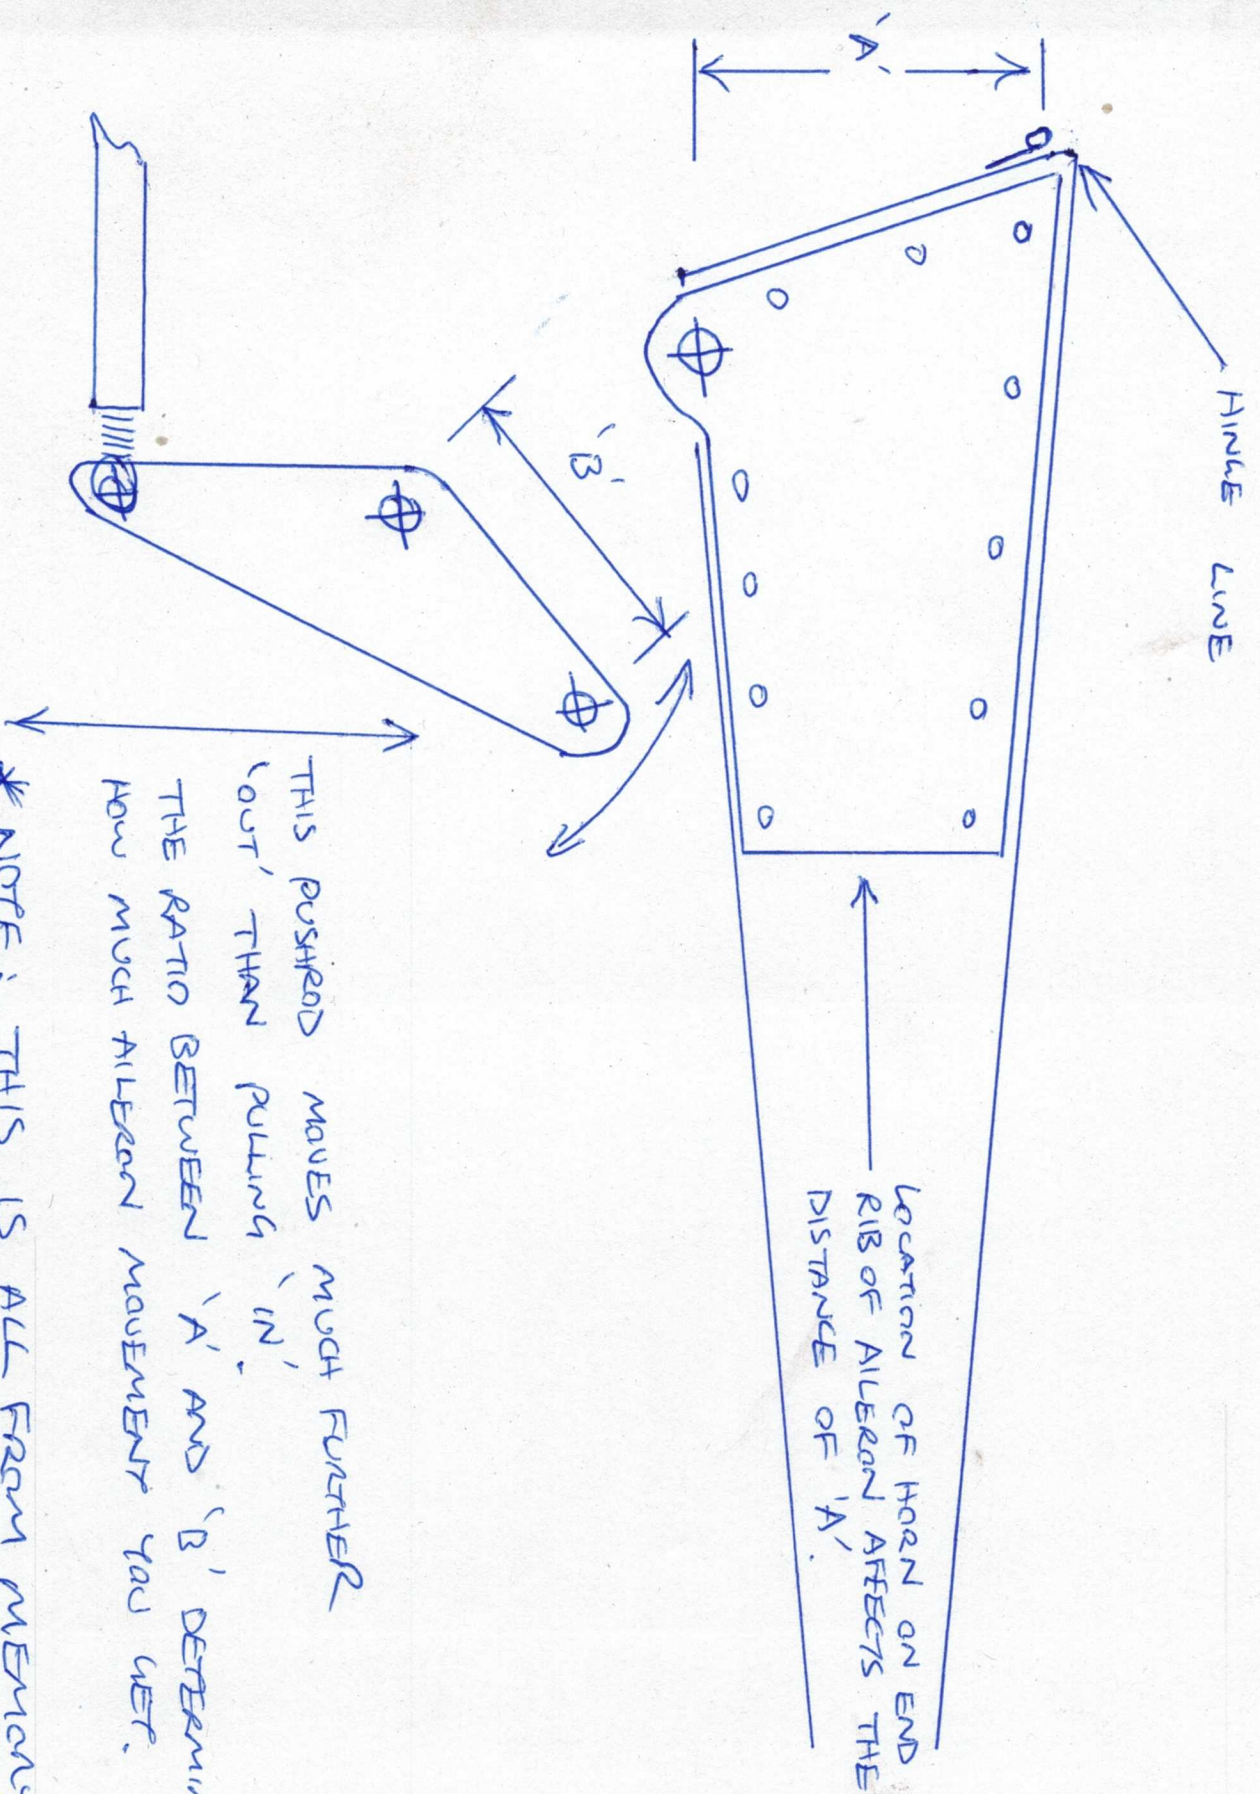 HINGE LINE
'A'
LOCATION OF HORN ON END
RIB OF AILERON AFFECTS THE
DISTANCE OF 'A'.
'B'
THIS PUSHROD MOVES MUCH FURTHER
'OUT' THAN PULLING 'IN'.
THE RATIO BETWEEN 'A' AND 'B' DETERMI
HOW MUCH AILERON MOVEMENT YOU GET.
* NOTE: THIS IS ALL FROM MEMOR